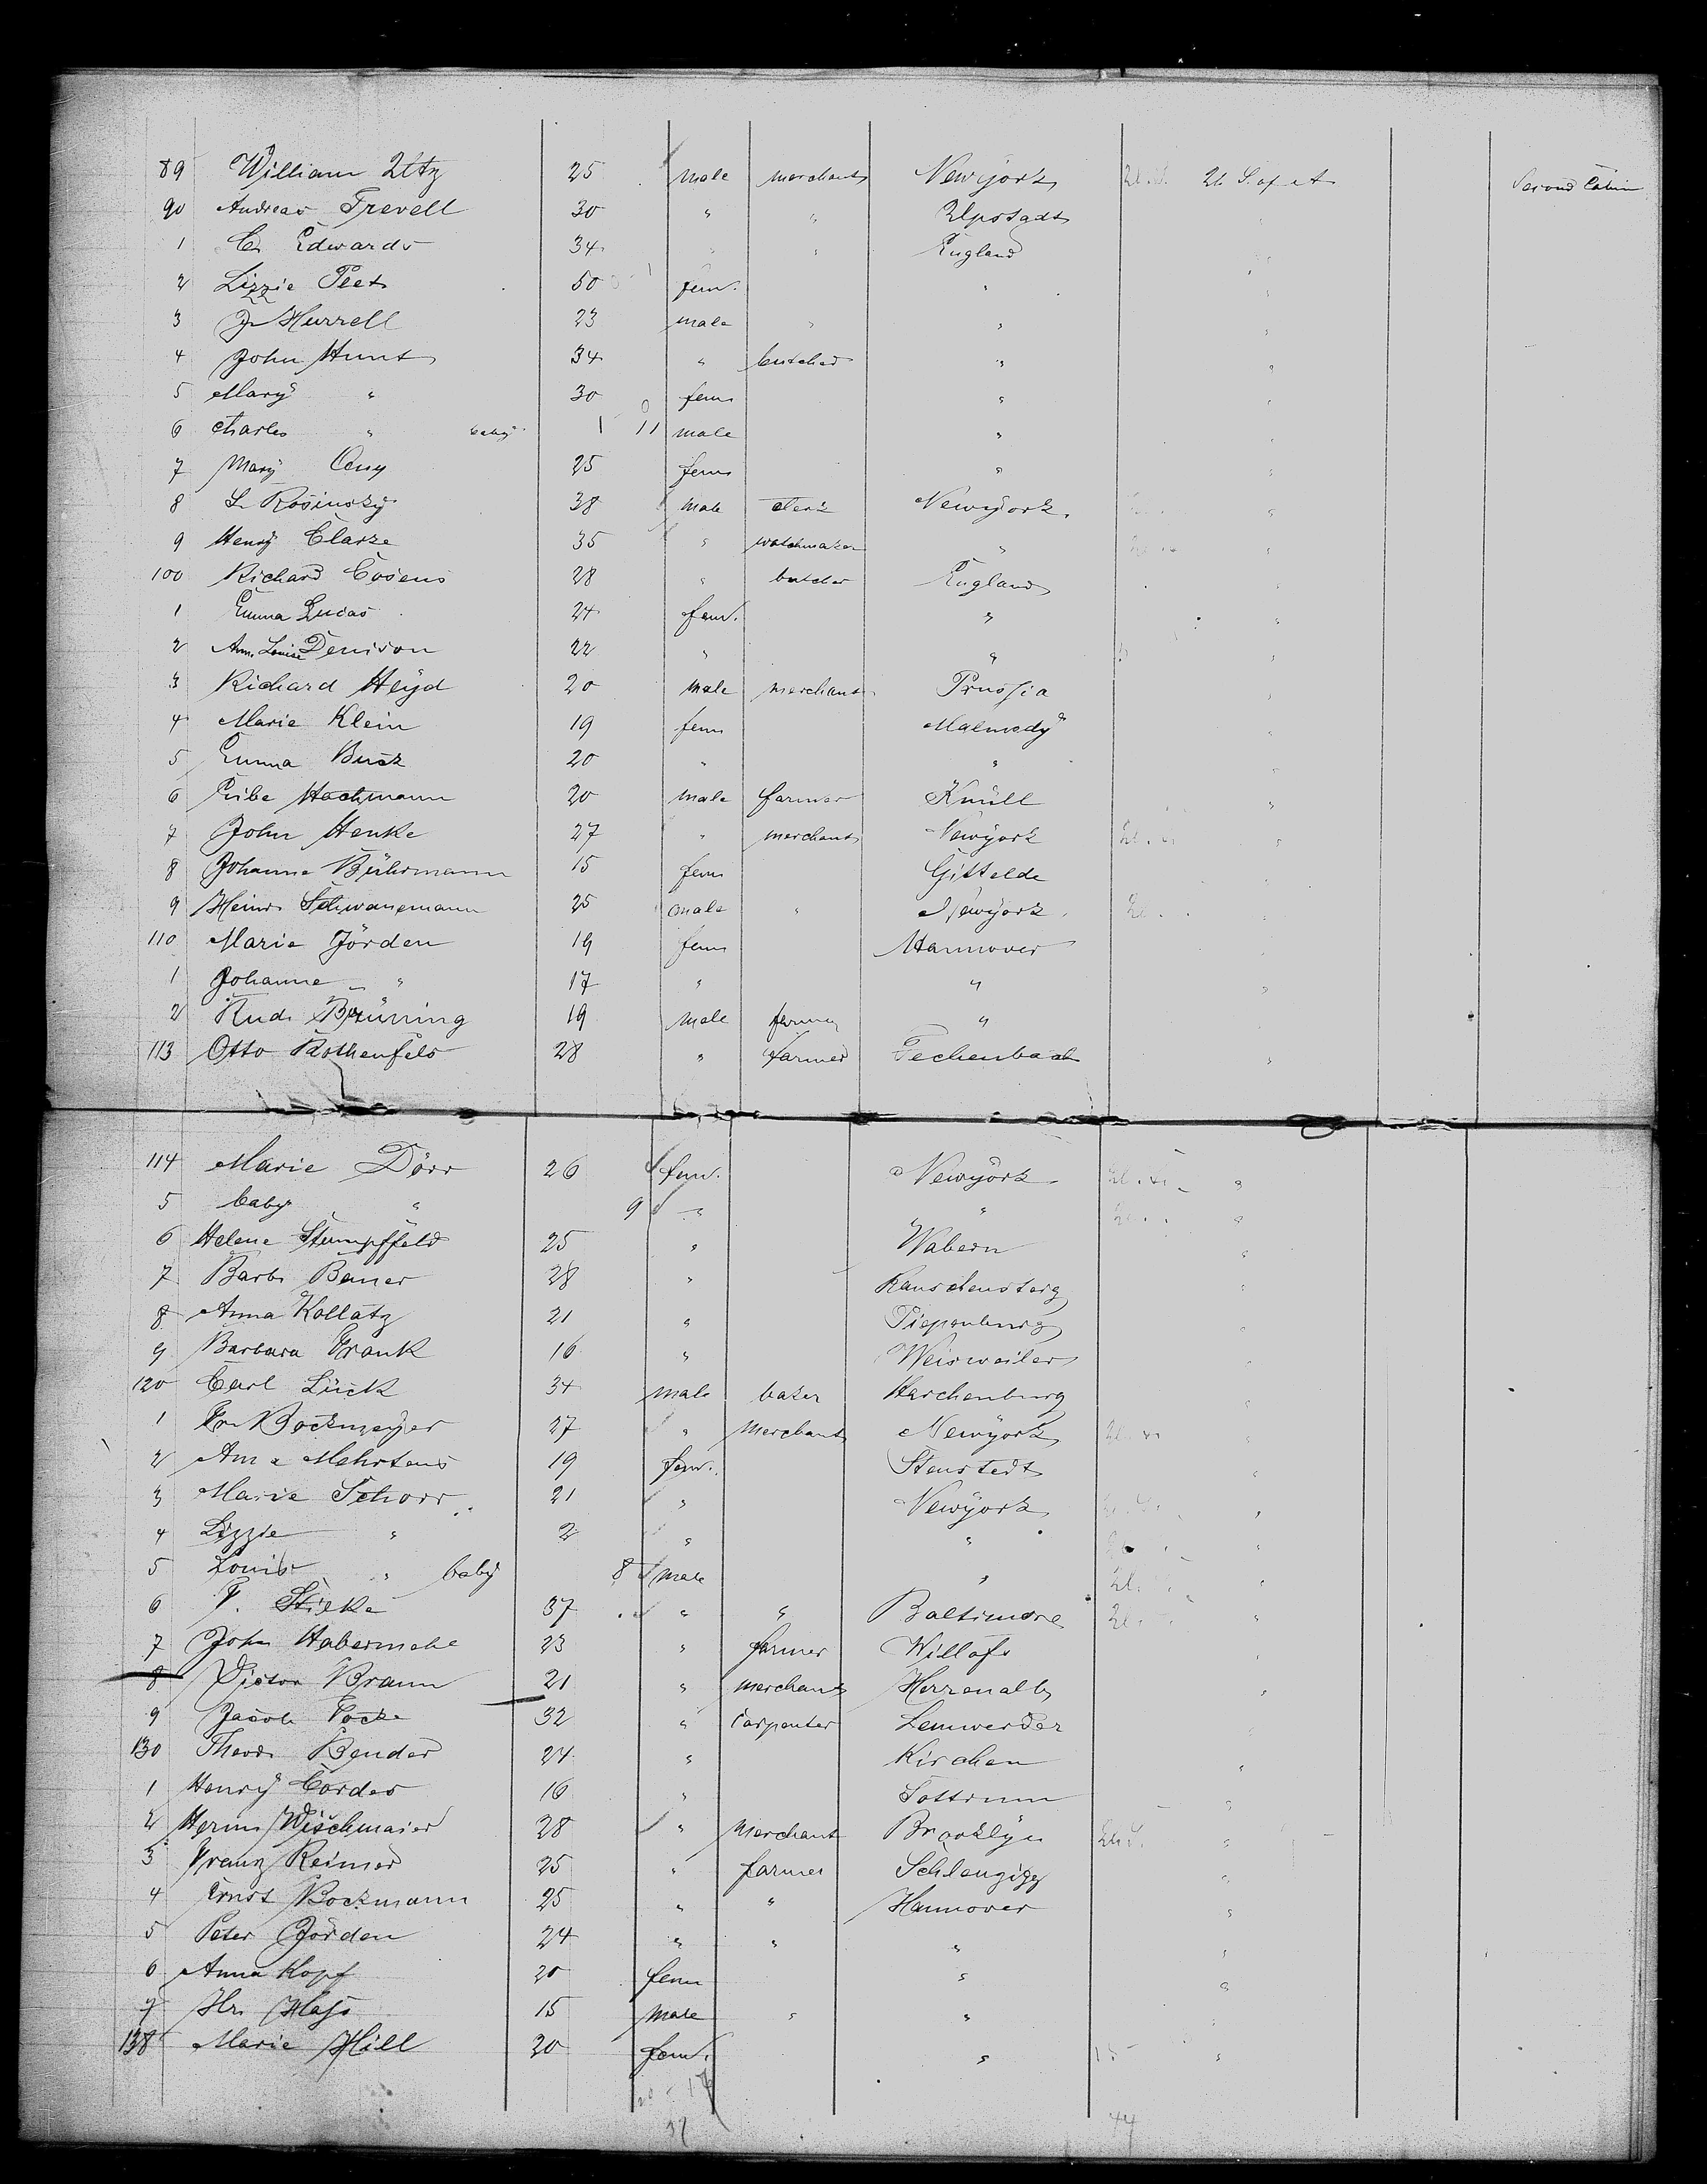 89 William Utz 25 male merchant Newyork U.S. U S. of A Second Cabin
90 Andreas Trevell 30 " " "
1 C. Edwards 34 " " England
2 Lizzie Peet 50 fem. "
3 J. Hurrell 23 male " "
4 John Hunt 34 " butcher " "
5 Mary " 30 fem " "
6 Charles " baby 11 male " "
7 Mary 25 fem " "
8 S. Rosinsky 38 male clerk Newyork "
9 Henry Clarke 35 " watchmaker " "
100 Richard Cosens 28 " butcher England "
1 Emma Lucas 24 fem. " "
2 Ann. Louise Denison 22 " " "
3 Richard Heyd 20 male merchant Prussia "
4 Marie Klein 19 fem Malmedy "
5 Emma Busk 20 " " "
6 Hachmann 20 male farmer Knüll "
7 John Henke 27 " merchant Newyork "
8 Johanne Bührmann 15 fem Gittelde "
9 Heinr. Schwanemann 25 male " Newyork "
110 Marie Jörden 19 fem Hannover "
1 Johanne " 17 " " "
2 Rud. Brüning 19 male farmer "
113 Otto Rothenfels 28 " farmer Fechenbach "
114 Marie Dörr 26 fem. Newyork "
5 baby " 9 " " "
6 Helene Stumpffeld 25 " Wabern "
7 Barb. Bauer 28 " "
8 Anna Kollatz 21 " Piepenburg "
9 Barbara Frank 16 " Weisweiler "
120 Carl Lück 34 male baker "
1 Fr. Bockmeyer 27 " Merchant Newyork "
2 Anna Mehrtens 19 fem. Stenstedt "
3 Marie Schorr 21 " Newyork "
4 Lizzie " 2 " " "
5 Louis " baby 8 male " "
6 F. Stilke 37 " " Baltimore "
7 John Habermehl 23 " farmer Willofs "
8 Victor Braun 21 " merchant Herrenalb "
9 Jacob Focke 32 " Carpenter Lemwerder "
130 Theod. Bender 24 " Kirchen "
1 Henry Cordes 16 " Sottrum "
2 Herm. Wischmaier 28 " Merchant Brooklyn "
3 Franz Reimer 25 " farmer "
4 Ernst Bockmann 25 " " Hannover "
5 Peter Jörden 24 " " " "
6 Anna Kopf 20 fem " "
7 Hr. Hajs 15 male " " "
138 Marie Hill 30 fem. " "
44